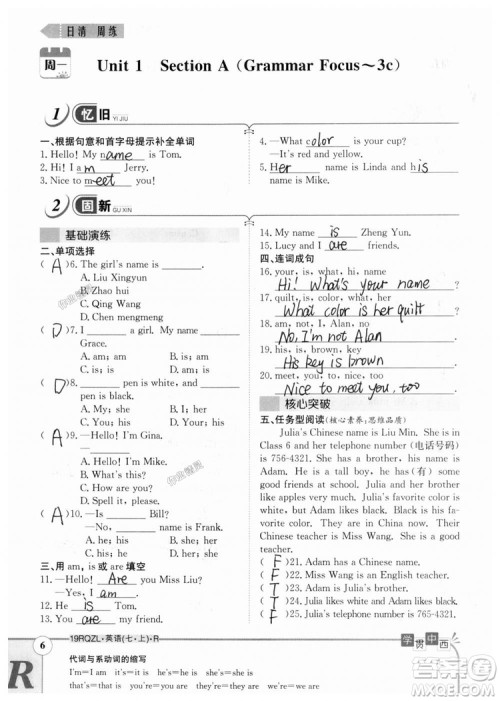 日清 周练
周一
Unit 1 Section A (Grammar Focus~3c)
1 忆旧 YI JIU
一、根据句意和首字母提示补全单词
1. Hello! My name is Tom.
2. Hi! I am Jerry.
3. Nice to meet you!
4. —What color is it?
—It's red and yellow.
5. Her name is Linda and his name is Mike.
2 固新 GU XIN
基础演练
二、单项选择
( A )6. The girl's name is ______.
A. Liu Xingyun
B. Zhao hui
C. Qing Wang
D. Chen mengmeng
( D )7. I ______ a girl. My name ______ Grace.
A. am; am B. is; is
C. is; am D. am; is
( D )8. ______ pen is white; ______ pen is black.
A. My; she B. I; her
C. I; she D. My; her
( A )9. —Hello! I'm Gina.
—______.
A. Hello! I'm Mike
B. What's this?
C. How are you?
D. Spell it, please.
( A )10. —Is ______ Bill?
—No, ______ name is Frank.
A. he; his B. his; he
C. he; he D. his; his
三、用 am, is 或 are 填空
11. —Hello! Are you Miss Liu?
12. He is my friend.
13. You are my friend.
14. My name is Zheng Yun.
15. Lucy and I are friends.
四、连词成句
16. your, is, hi, what, name
Hi! What's your name?
17. quilt, is, color, her, what
What color is her quilt?
18. am, not, I, no, Alan
No, I'm not Alan.
19. his, is, brown, key
His key is brown.
20. meet, you, too, to, nice
Nice to meet you, too.
核心突破
五、任务型阅读(核心素养:思维品质)
Julia's Chinese name is Liu Min. She is in
Class 6 and her telephone number (电话号码)
is 756-4321. She has a brother, his name is
Adam. He is a tall boy, he has (有) some
good friends. Julia's favorite color is white and
her brother likes orange and black. Miss Wang is
their Chinese teacher.
( F )21. Adam has a Chinese name.
( F )22. Miss Wang is an English teacher.
( T )23. Adam is Julia's brother.
( T )24. Julia's favorite color is white.
( F )25. Julia's telephone number is 765-4321.
6 19RQZL·英语(七·上)·R 学贯中西
R
代词与系动词的缩写
I'm=I am he's=he is she's=she is it's=it is
that's=that is you're=you are they're=they are